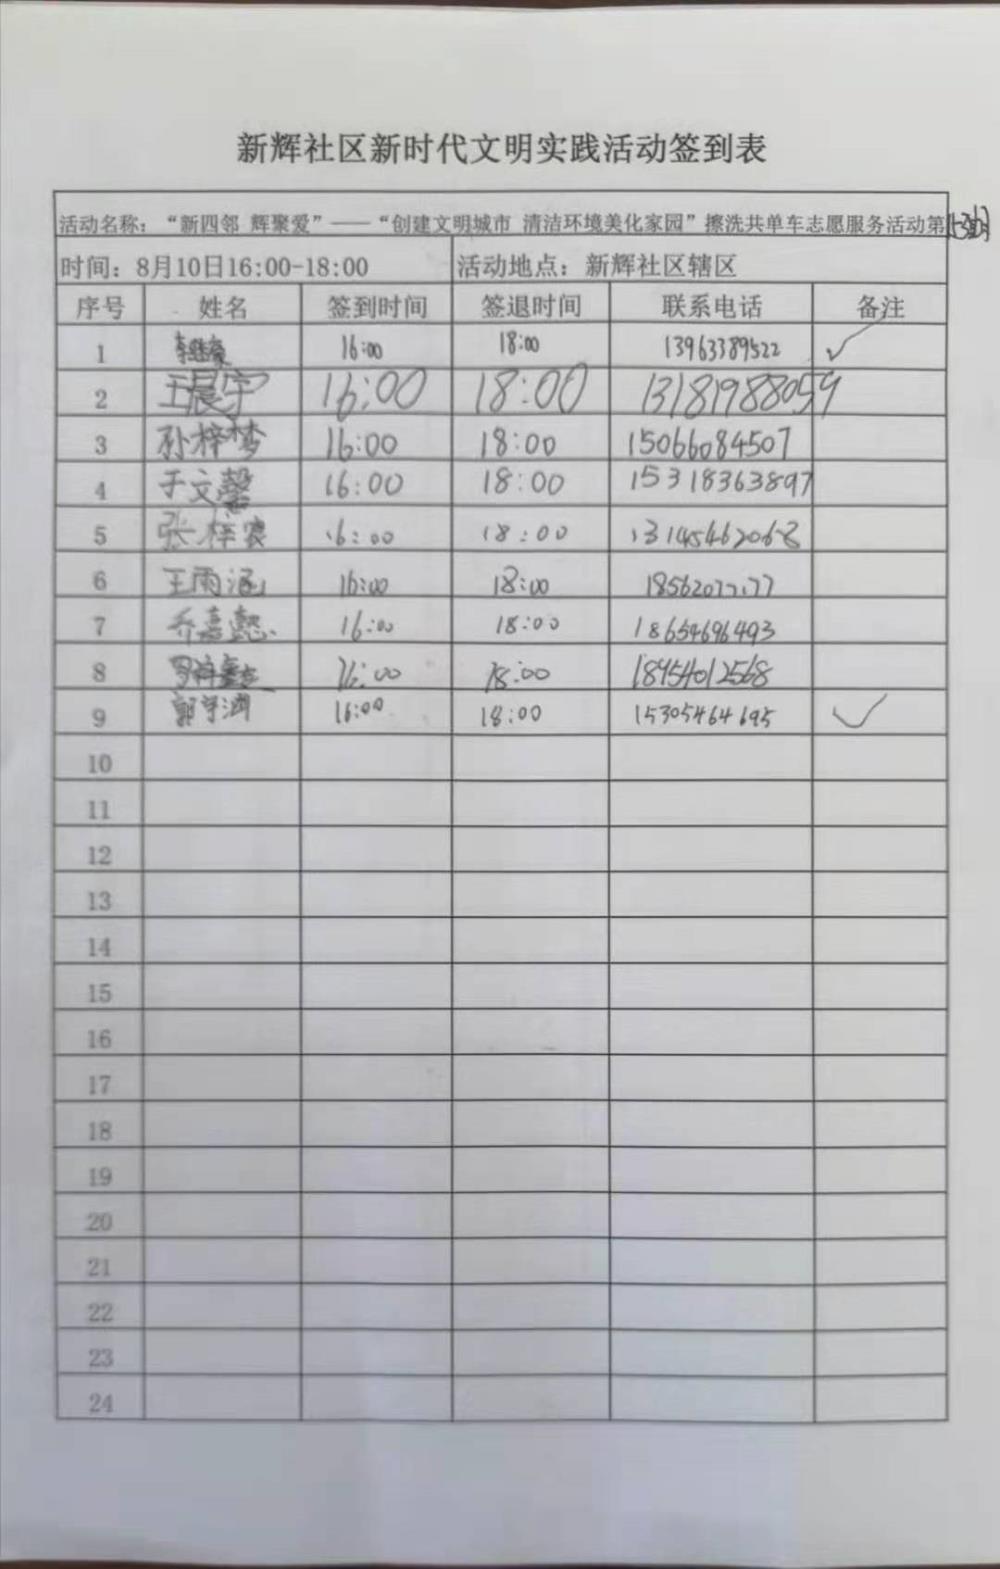 新辉社区新时代文明实践活动签到表
活动名称：“新四邻 辉聚爱”——“创建文明城市 清洁环境美化家园”擦洗共单车志愿服务活动第
时间：8月10日16:00-18:00 活动地点：新辉社区辖区
序号 姓名 签到时间 签退时间 联系电话 备注
1 16:00 18:00 13963389522 ✓
2 王晨宇 16:00 18:00 13181988059
3 孙梓梦 16:00 18:00 15066084507
4 于文馨 16:00 18:00 15318363897
5 张梓 16:00 18:00 13145462068
6 王雨涵 16:00 18:00
7 乔嘉懿 16:00 18:00 18654696493
8 16:00 18:00 18954012568
9 郭宇涵 16:00 18:00 15305464695 ✓
10
11
12
13
14
15
16
17
18
19
20
21
22
23
24